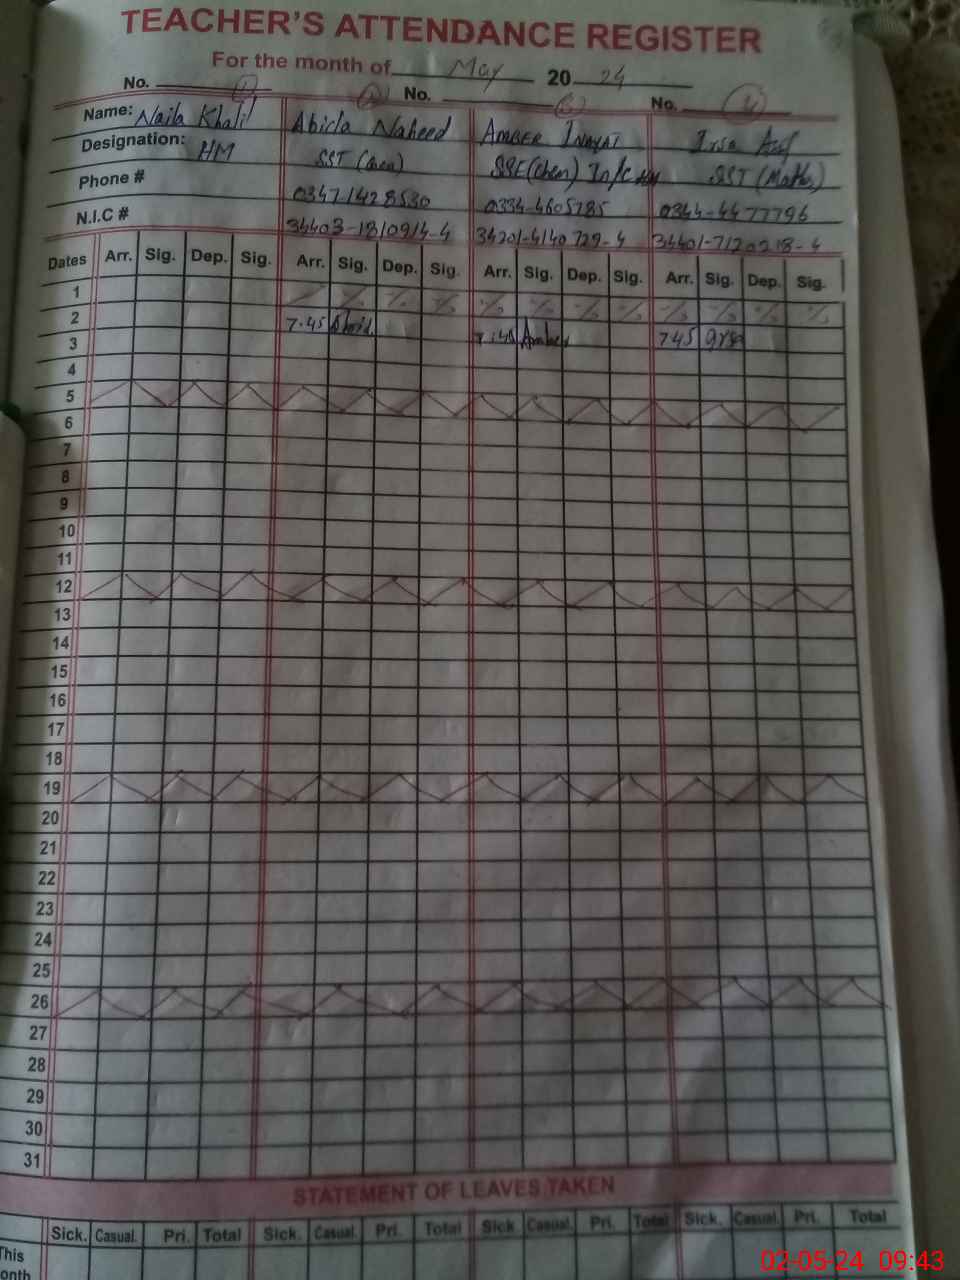 TEACHER'S ATTENDANCE REGISTER
For the month of May 20 24
No. 1 2 No. 3 No. 4
Name: Naila Khalil Abida Naheed AMBER INAYAT Irsa
Designation: HM SST (Gen) SSE(Chem) In/C HM SST (Maths)
Phone # 03471428530 0334-4605785 0344-4477796
N.I.C # 34403-1810914-4 34201-4140729-4 34401-7120218-4
Dates Arr. Sig. Dep. Sig. Arr. Sig. Dep. Sig. Arr. Sig. Dep. Sig. Arr. Sig. Dep. Sig.
1
2 7.45 Abida 7:45 Amber 745 Irsa
3
4
5
6
7
8
9
10
11
12
13
14
15
16
17
18
19
20
21
22
23
24
25
26
27
28
29
30
31
STATEMENT OF LEAVES TAKEN
Sick. Casual. Pri. Total Sick. Casual. Pri. Total Sick Casual. Pri. Total Sick. Casual. Pri. Total
This
onth
02-05-24 09:43